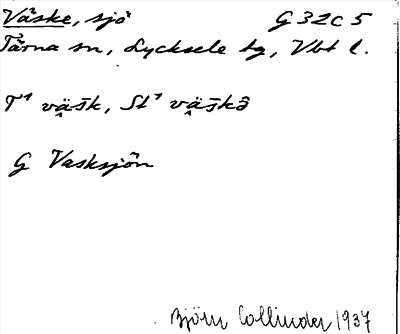 Väske, sjö G 32 C 5
Tärna sn, Lycksele lg, Vbt l.
T¹ vä̭s̄k, St¹ vä̭s̄kə̂
G Vasksjön
Björn Collinder 1937